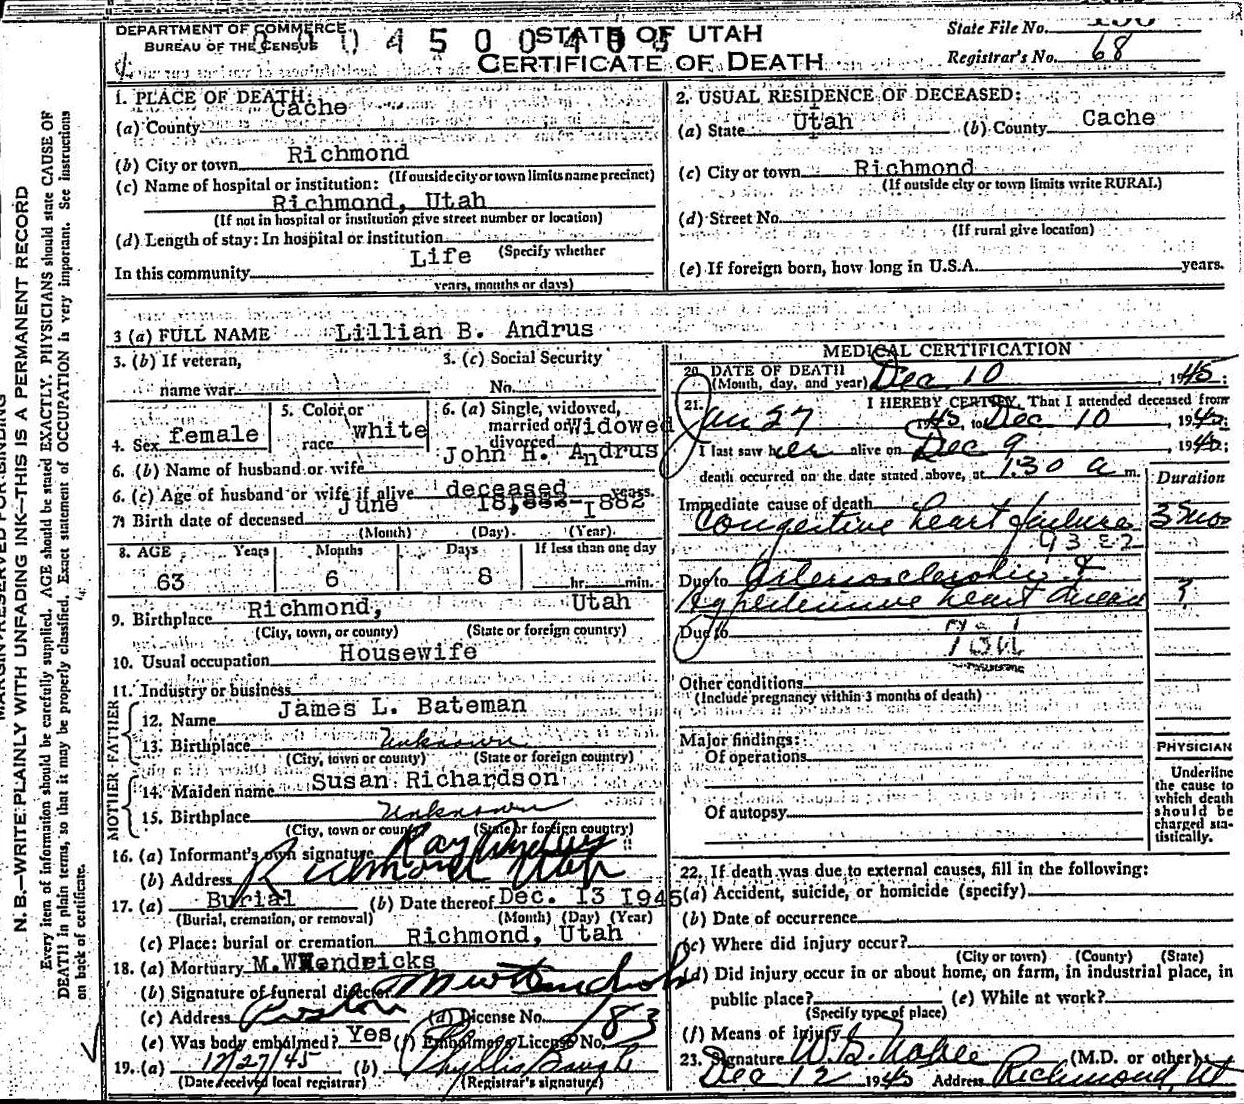 DEPARTMENT OF COMMERCE
BUREAU OF THE CENSUS
STATE OF UTAH
CERTIFICATE OF DEATH
State File No.
Registrar's No. 68
1. PLACE OF DEATH:
(a) County Cache
(b) City or town Richmond
(If outside city or town limits name precinct)
(c) Name of hospital or institution:
Richmond, Utah
(If not in hospital or institution give street number or location)
(d) Length of stay: In hospital or institution
(Specify whether
In this community Life
years, months or days)
2. USUAL RESIDENCE OF DECEASED:
(a) State Utah (b) County Cache
(c) City or town Richmond
(If outside city or town limits write RURAL)
(d) Street No.
(If rural give location)
(e) If foreign born, how long in U.S.A. years.
3 (a) FULL NAME Lillian B. Andrus
3. (b) If veteran,
name war
3. (c) Social Security
No.
4. Sex female
5. Color or
race white
6. (a) Single, widowed,
married or
divorced Widowed
6. (b) Name of husband or wife John H. Andrus
6. (c) Age of husband or wife if alive deceased years.
7. Birth date of deceased June 18, 1882
(Month) (Day) (Year)
8. AGE Years Months Days If less than one day
63 6 8 hr. min.
9. Birthplace Richmond, Utah
(City, town, or county) (State or foreign country)
10. Usual occupation Housewife
11. Industry or business
FATHER
12. Name James L. Bateman
13. Birthplace Unknown
(City, town or county) (State or foreign country)
MOTHER
14. Maiden name Susan Richardson
15. Birthplace Unknown
(City, town or county) (State or foreign country)
16. (a) Informant's own signature Ray
(b) Address Richmond Utah
17. (a) Burial (b) Date thereof Dec. 13 1945
(Burial, cremation, or removal) (Month) (Day) (Year)
(c) Place: burial or cremation Richmond, Utah
18. (a) Mortuary M.W Hendricks
(b) Signature of funeral director M W Hendricks
(c) Address Preston (d) License No. 183
(e) Was body embalmed? Yes (f) Embalmer's License No.
19. (a) 12/27/45 (b) Phyllis Baugh
(Date received local registrar) (Registrar's signature)
MEDICAL CERTIFICATION
20. DATE OF DEATH
(Month, day, and year) Dec 10, 1945
21. I HEREBY CERTIFY, That I attended deceased from
Jan 27 1945, to Dec 10, 1945
I last saw her alive on Dec 9, 1945
death occurred on the date stated above, at 1:30 a m.
Duration
Immediate cause of death
Congestive heart failure
Due to Arteriosclerotic &
Hypertensive heart disease ?
Due to
Other conditions
(Include pregnancy within 3 months of death)
Major findings:
Of operations
Of autopsy
PHYSICIAN
Underline
the cause to
which death
should be
charged sta-
tistically.
22. If death was due to external causes, fill in the following:
(a) Accident, suicide, or homicide (specify)
(b) Date of occurrence
(c) Where did injury occur?
(City or town) (County) (State)
(d) Did injury occur in or about home, on farm, in industrial place, in
public place? (e) While at work?
(Specify type of place)
(f) Means of injury
23. Signature (M.D. or other)
Dec 12 1945 Address Richmond, Ut
N. B.—WRITE PLAINLY WITH UNFADING INK—THIS IS A PERMANENT RECORD
Every item of information should be carefully supplied. AGE should be stated EXACTLY. PHYSICIANS should state CAUSE OF
DEATH in plain terms, so that it may be properly classified. Exact statement of OCCUPATION is very important. See instructions
on back of certificate.